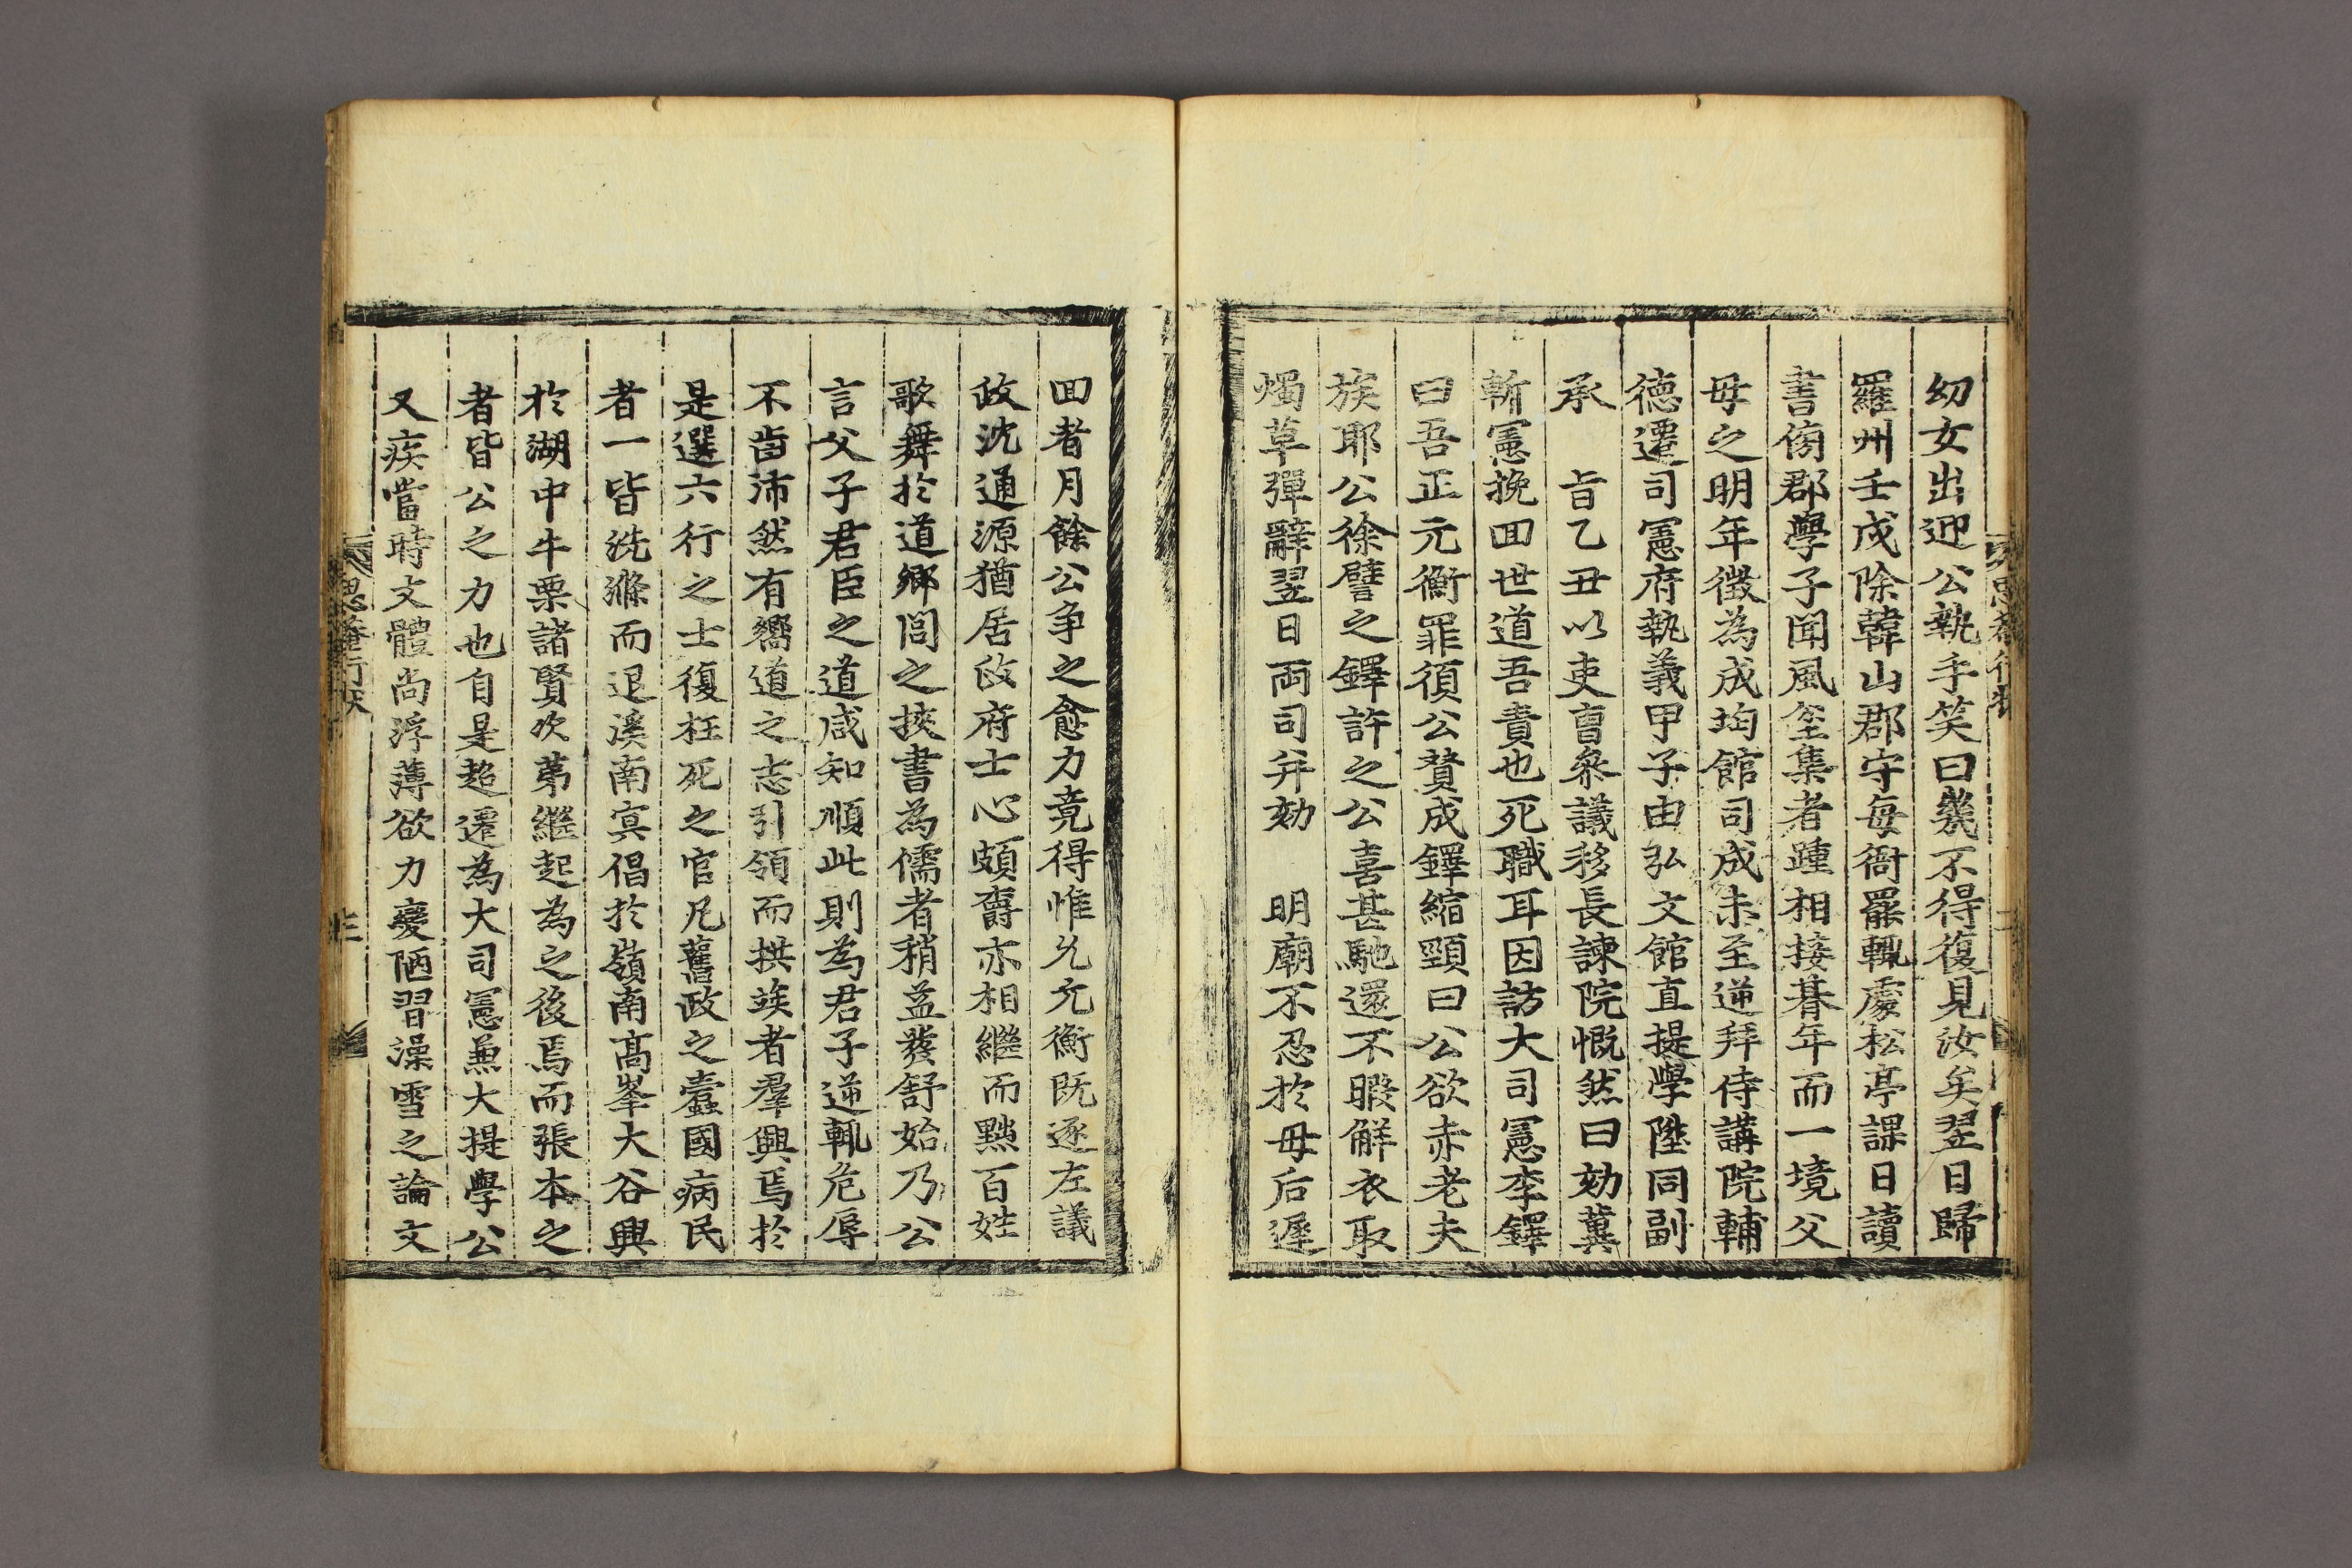 幼女出迎公執手笑曰幾不得復見汝矣翌日歸
羅州壬戌除韓山郡守每衙罷輒處松亭課日讀
書傍郡學子聞風坌集者踵相接朞年而一境父
母之明年徵為成均館司成未至遞拜侍講院輔
德遷司憲府執義甲子由弘文館直提學陞同副
承 旨乙丑以吏曹參議移長諫院慨然曰劾冀
斬憲挽回世道吾責也死職耳因訪大司憲李鐸
曰吾正元衡罪須公賛成鐸縮頸曰公欲赤老夫
族耶公徐譬之鐸許之公喜甚馳還不暇解衣取
燭草彈辭翌日両司并劾 明廟不忍於母后遲
回者月餘公争之愈力竟得惟允元衡既逐左議
政沈通源猶居政府士心頗欝亦相繼而黜百姓
歌舞於道鄉閭之挾書為儒者稍益發舒始乃公
言父子君臣之道咸知順此則為君子逆輒危辱
不齒沛然有嚮道之志引領而拱竢者羣興焉於
是選六行之士復枉死之官凡舊政之蠹國病民
者一皆洗滌而退溪南冥倡於嶺南高峯大谷興
於湖中牛栗諸賢次第繼起為之後焉而張本之
者皆公之力也自是超遷為大司憲兼大提學公
又疾當時文體尚浮薄欲力變陋習澡雪之論文
思菴行狀